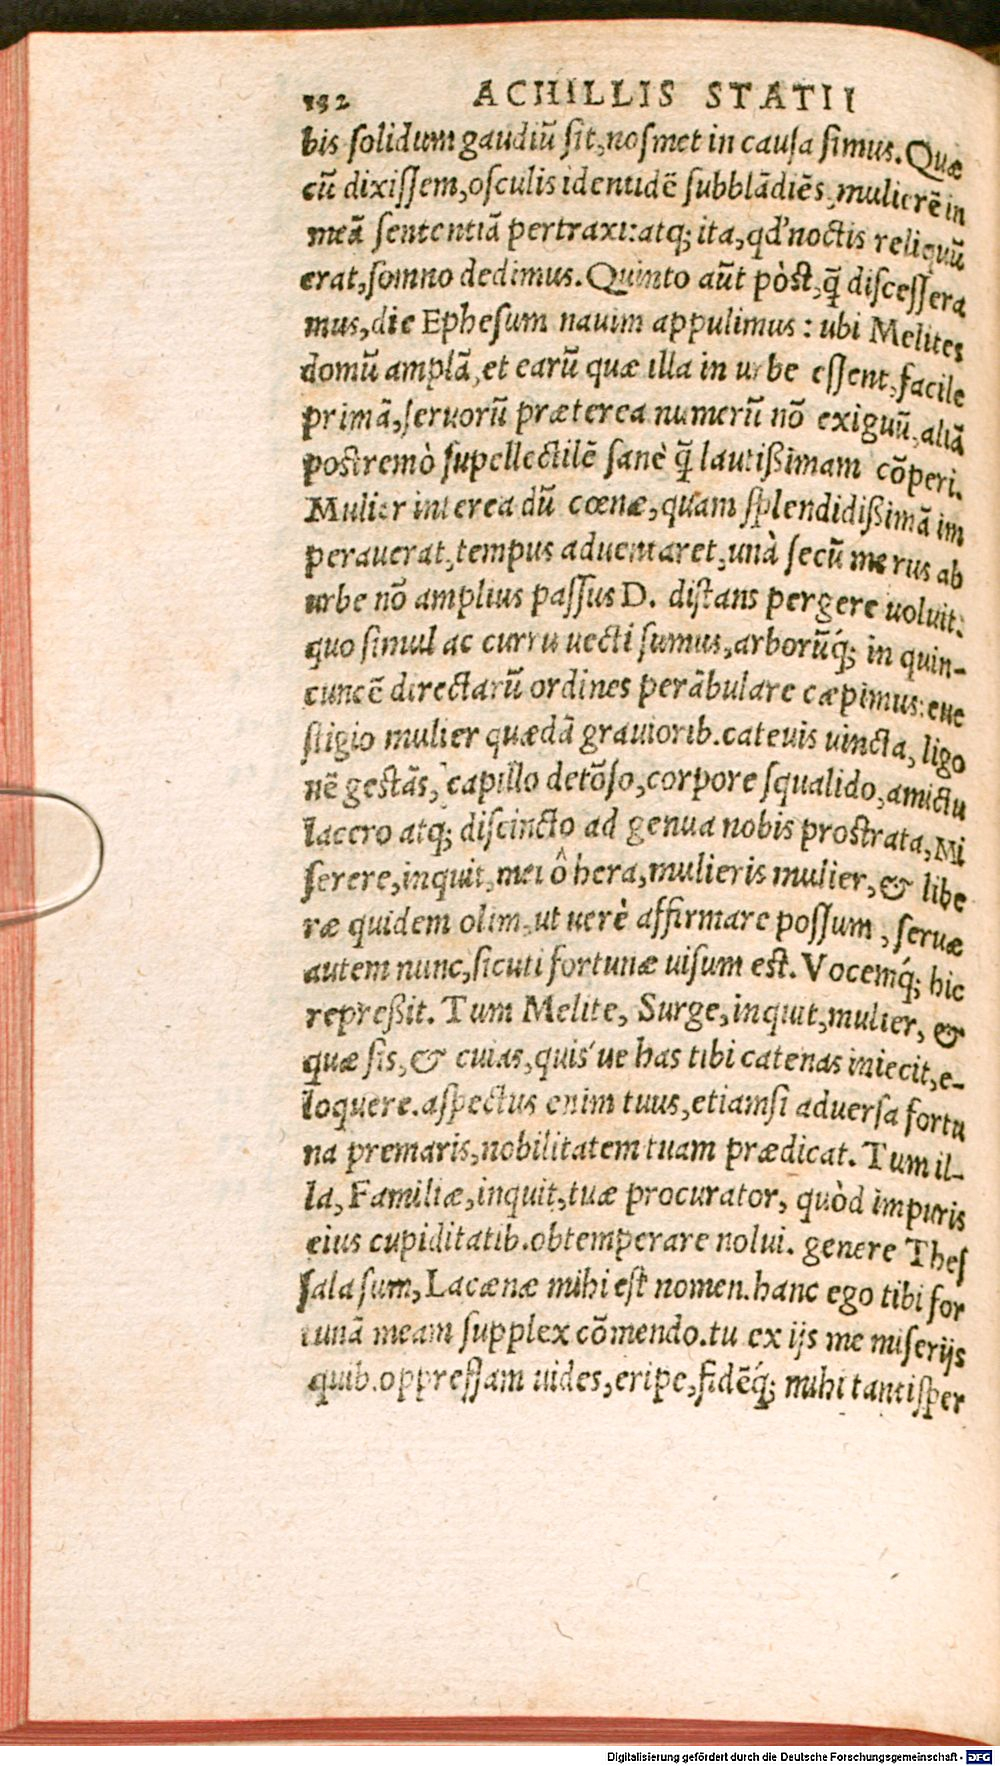 152 ACHILLIS STATII
bis solidum gaudiū sit, nosmet in causa simus. Quæ
cū dixissem, osculis identidē subblādiēs, mulierē in
meā sententiā pertraxi: atq; ita, qđ noctis reliquū
erat, somno dedimus. Quinto aūt pòst, q̄ discessera
mus, die Ephesum nauim appulimus: ubi Melites
domū amplā, et earū quæ illa in urbe essent, facile
primā, seruorū præterea numerū nō exiguū, aliā
postremò supellectilē sanè q̄ lautißimam cōperi.
Mulier interea dū cœnæ, quam splendidißimā im
perauerat, tempus aduentaret, unà secū me rus ab
urbe nō amplius passus D. distans pergere uoluit:
quo simul ac curru uecti sumus, arborūq́; in quin-
cuncē directarū ordines perābulare cæpimus: eue
stigio mulier quædā grauiorib. catenis uincta, ligo
nē gestās, capillo detōso, corpore squalido, amictu
lacero atq; discincto ad genua nobis prostrata, Mi
serere, inquit, mei ô hera, mulieris mulier, & libe
ræ quidem olim, ut uerè affirmare possum, seruæ
autem nunc, sicuti fortunæ uisum est. Vocemq́; hic
repreßit. Tum Melite, Surge, inquit, mulier, &
quæ sis, & cuias, quis'ue has tibi catenas iniecit, e-
loquere. aspectus enim tuus, etiamsi aduersa fortu
na premaris, nobilitatem tuam prædicat. Tum il-
la, Familiæ, inquit, tuæ procurator, quòd impuris
eius cupiditatib. obtemperare nolui. genere Thes
sala sum, Lacænæ mihi est nomen. hanc ego tibi for
tunā meam supplex cōmendo. tu ex ijs me miserijs
quib. oppressam uides, eripe, fidēq́; mihi tantisper
Digitalisierung gefördert durch die Deutsche Forschungsgemeinschaft - DFG